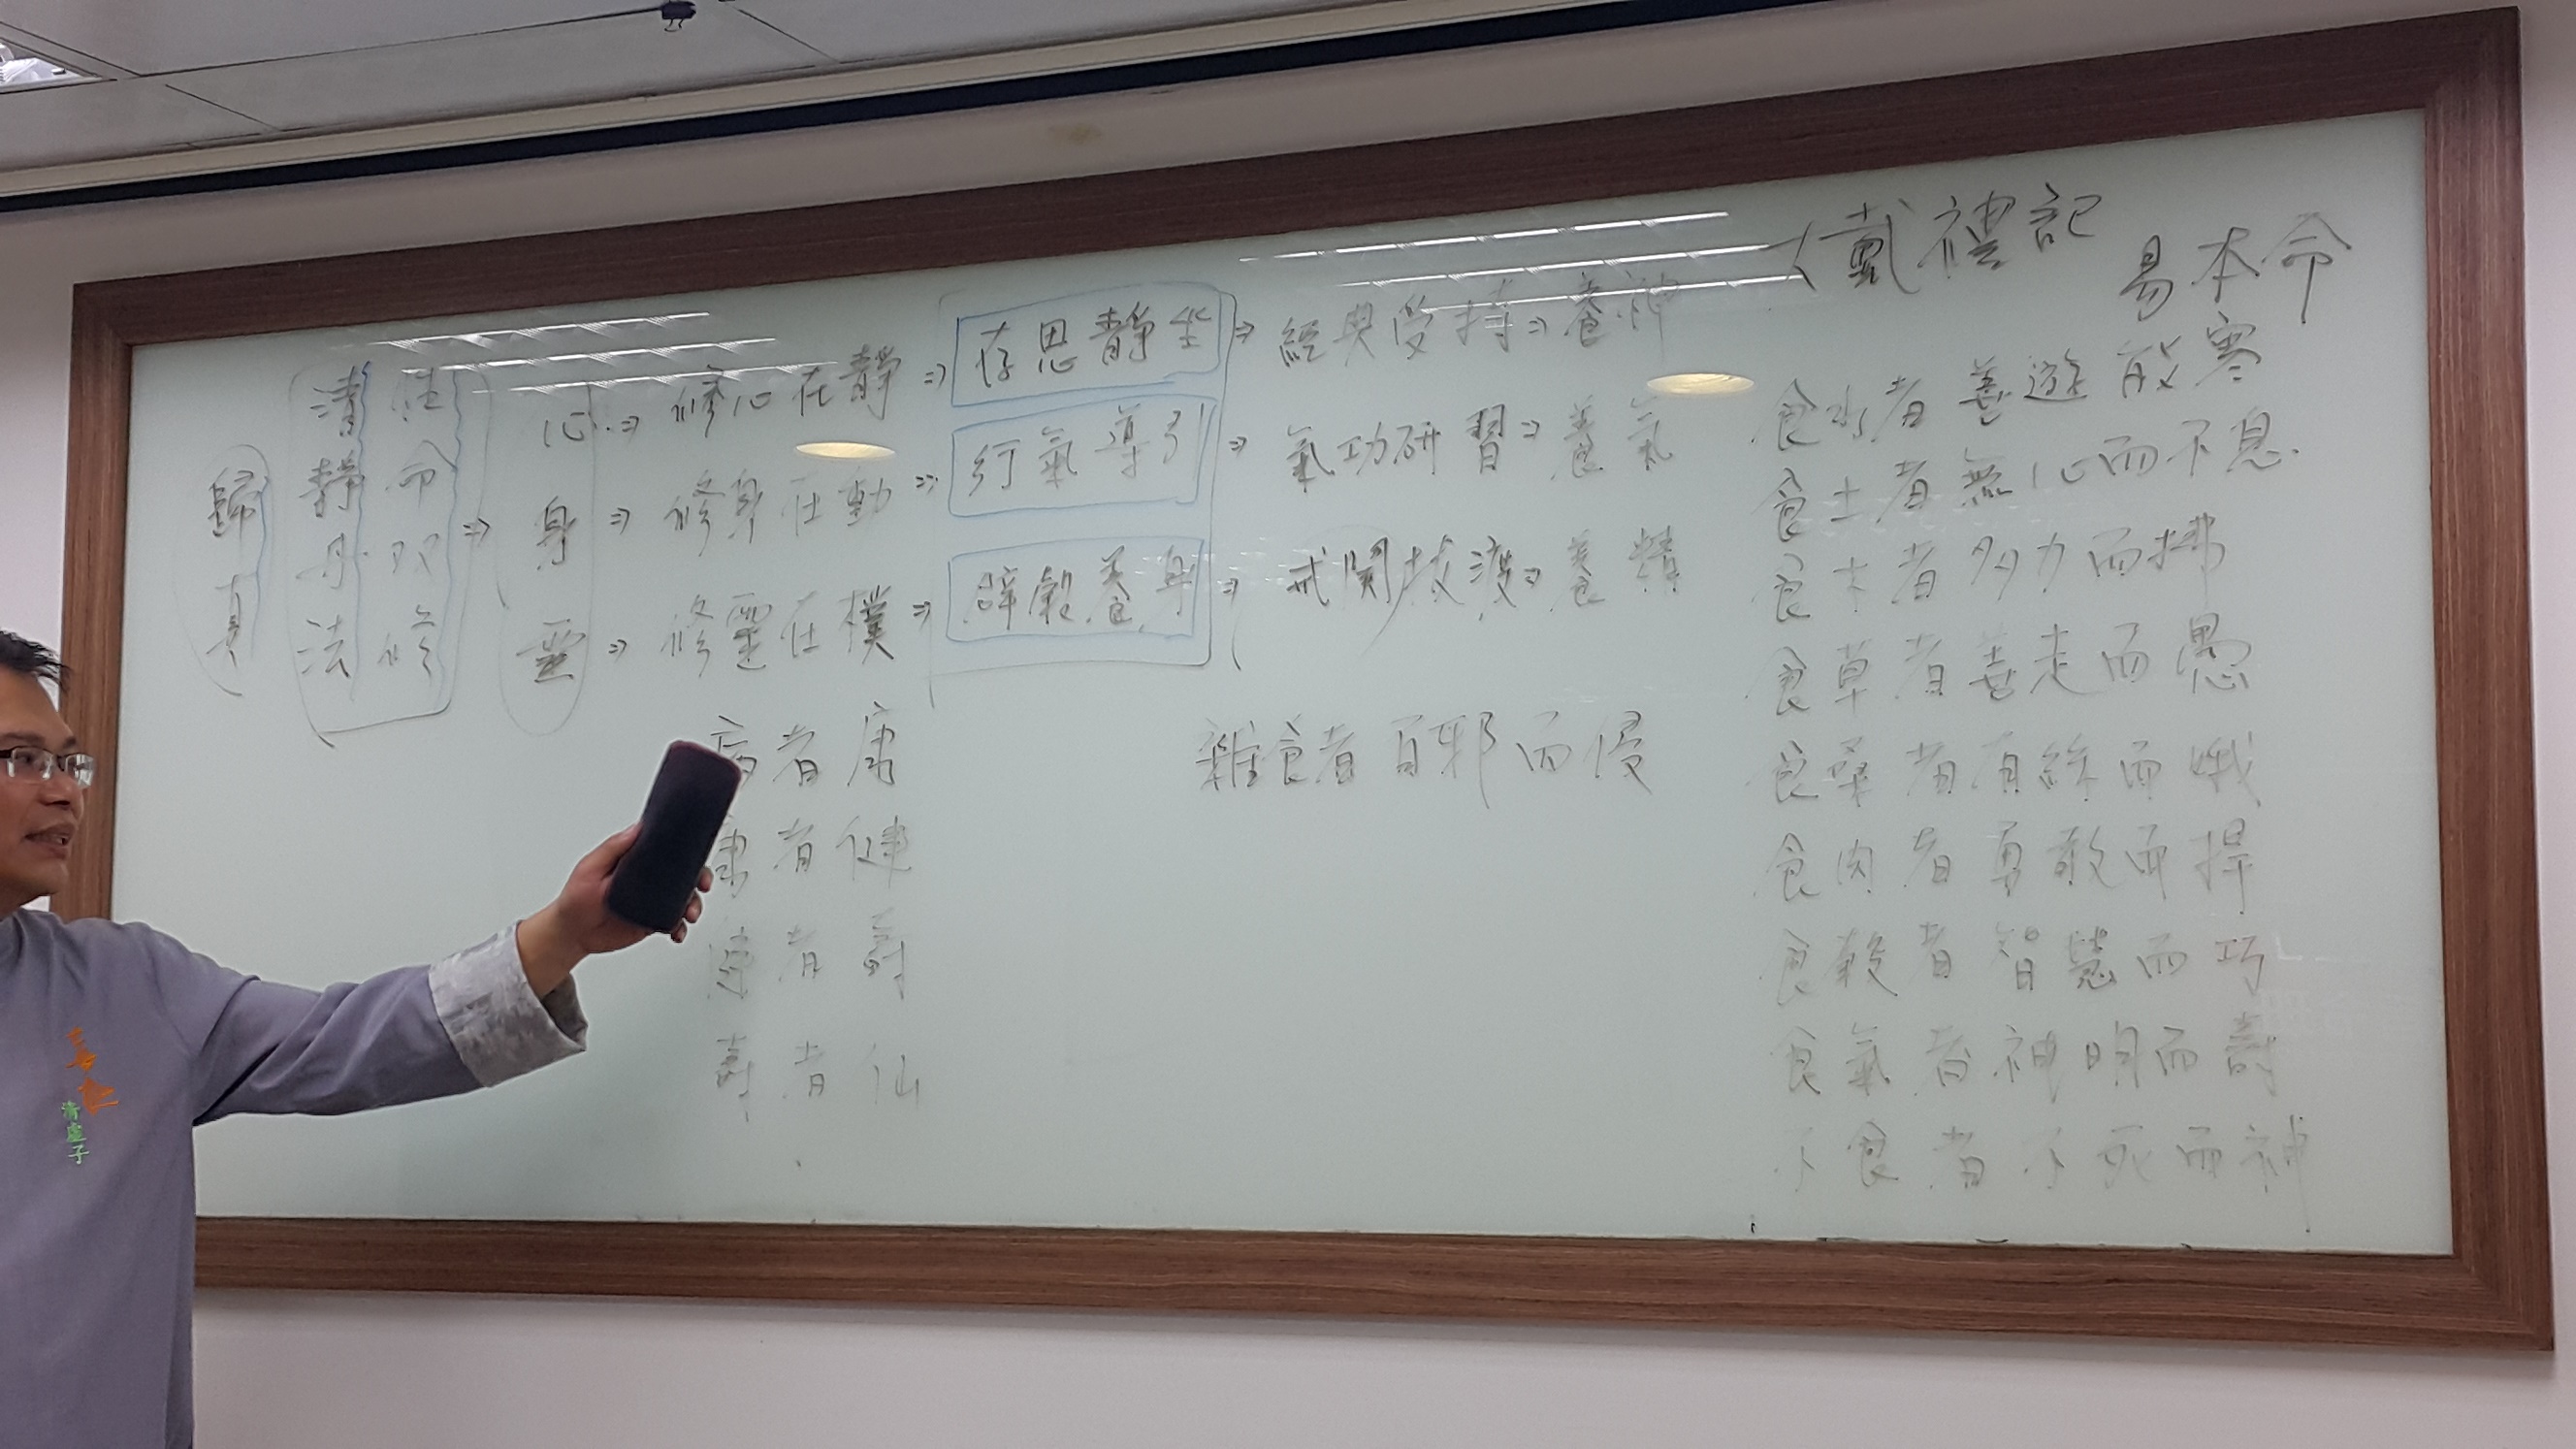 歸真
清靜丹法
性命双修
⇒
心 ⇒ 修心在靜 ⇒ 存思靜坐 ⇒ 經典受持 ⇒ 養神
身 ⇒ 修身在動 ⇒ 行氣導引 ⇒ 氣功研習 ⇒ 養氣
靈 ⇒ 修靈在樸 ⇒ 辟穀養身 ⇒ 開拔渡 ⇒ 養精
病者康
康者健
健者壽
壽者仙
雜食者百邪而侵
大戴禮記
易本命
食水者善遊耐寒
食土者無心而不息
食木者多力而拂
食草者善走而愚
食桑者有絲而蛾
食肉者勇敢而捍
食穀者智慧而巧
食氣者神明而壽
不食者不死而神
清虛子